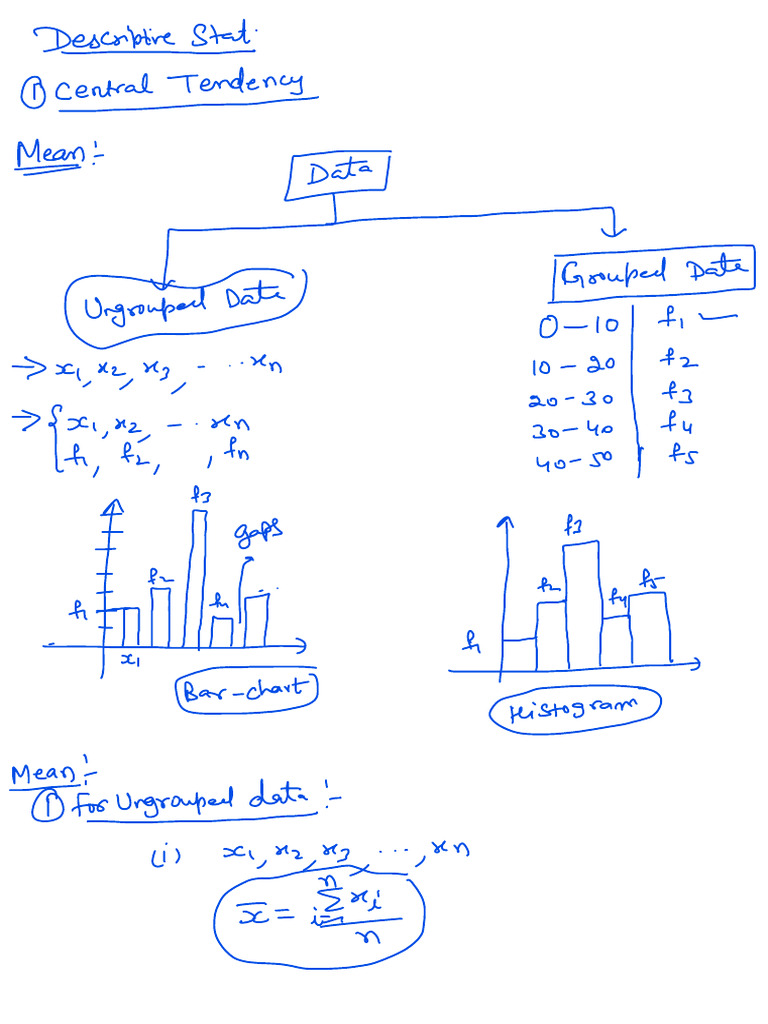 Descriptive Stat.
① Central Tendency
Mean :-
Data
Ungrouped Data
Grouped Data
→ x₁, x₂, x₃, - ... xₙ
→ { x₁, x₂, - .. xₙ
f₁, f₂, , fₙ
0-10 | f₁
10-20 | f₂
20-30 | f₃
30-40 | f₄
40-50 | f₅
f₃
gaps
f₂
f₁
f₄
x₁
Bar-chart
f₃
f₂
f₅
f₄
f₁
Histogram
Mean :-
① for Ungrouped data :-
(i) x₁, x₂, x₃, ..., xₙ
x̄ = ∑ⁿᵢ₌₁ xᵢ / n